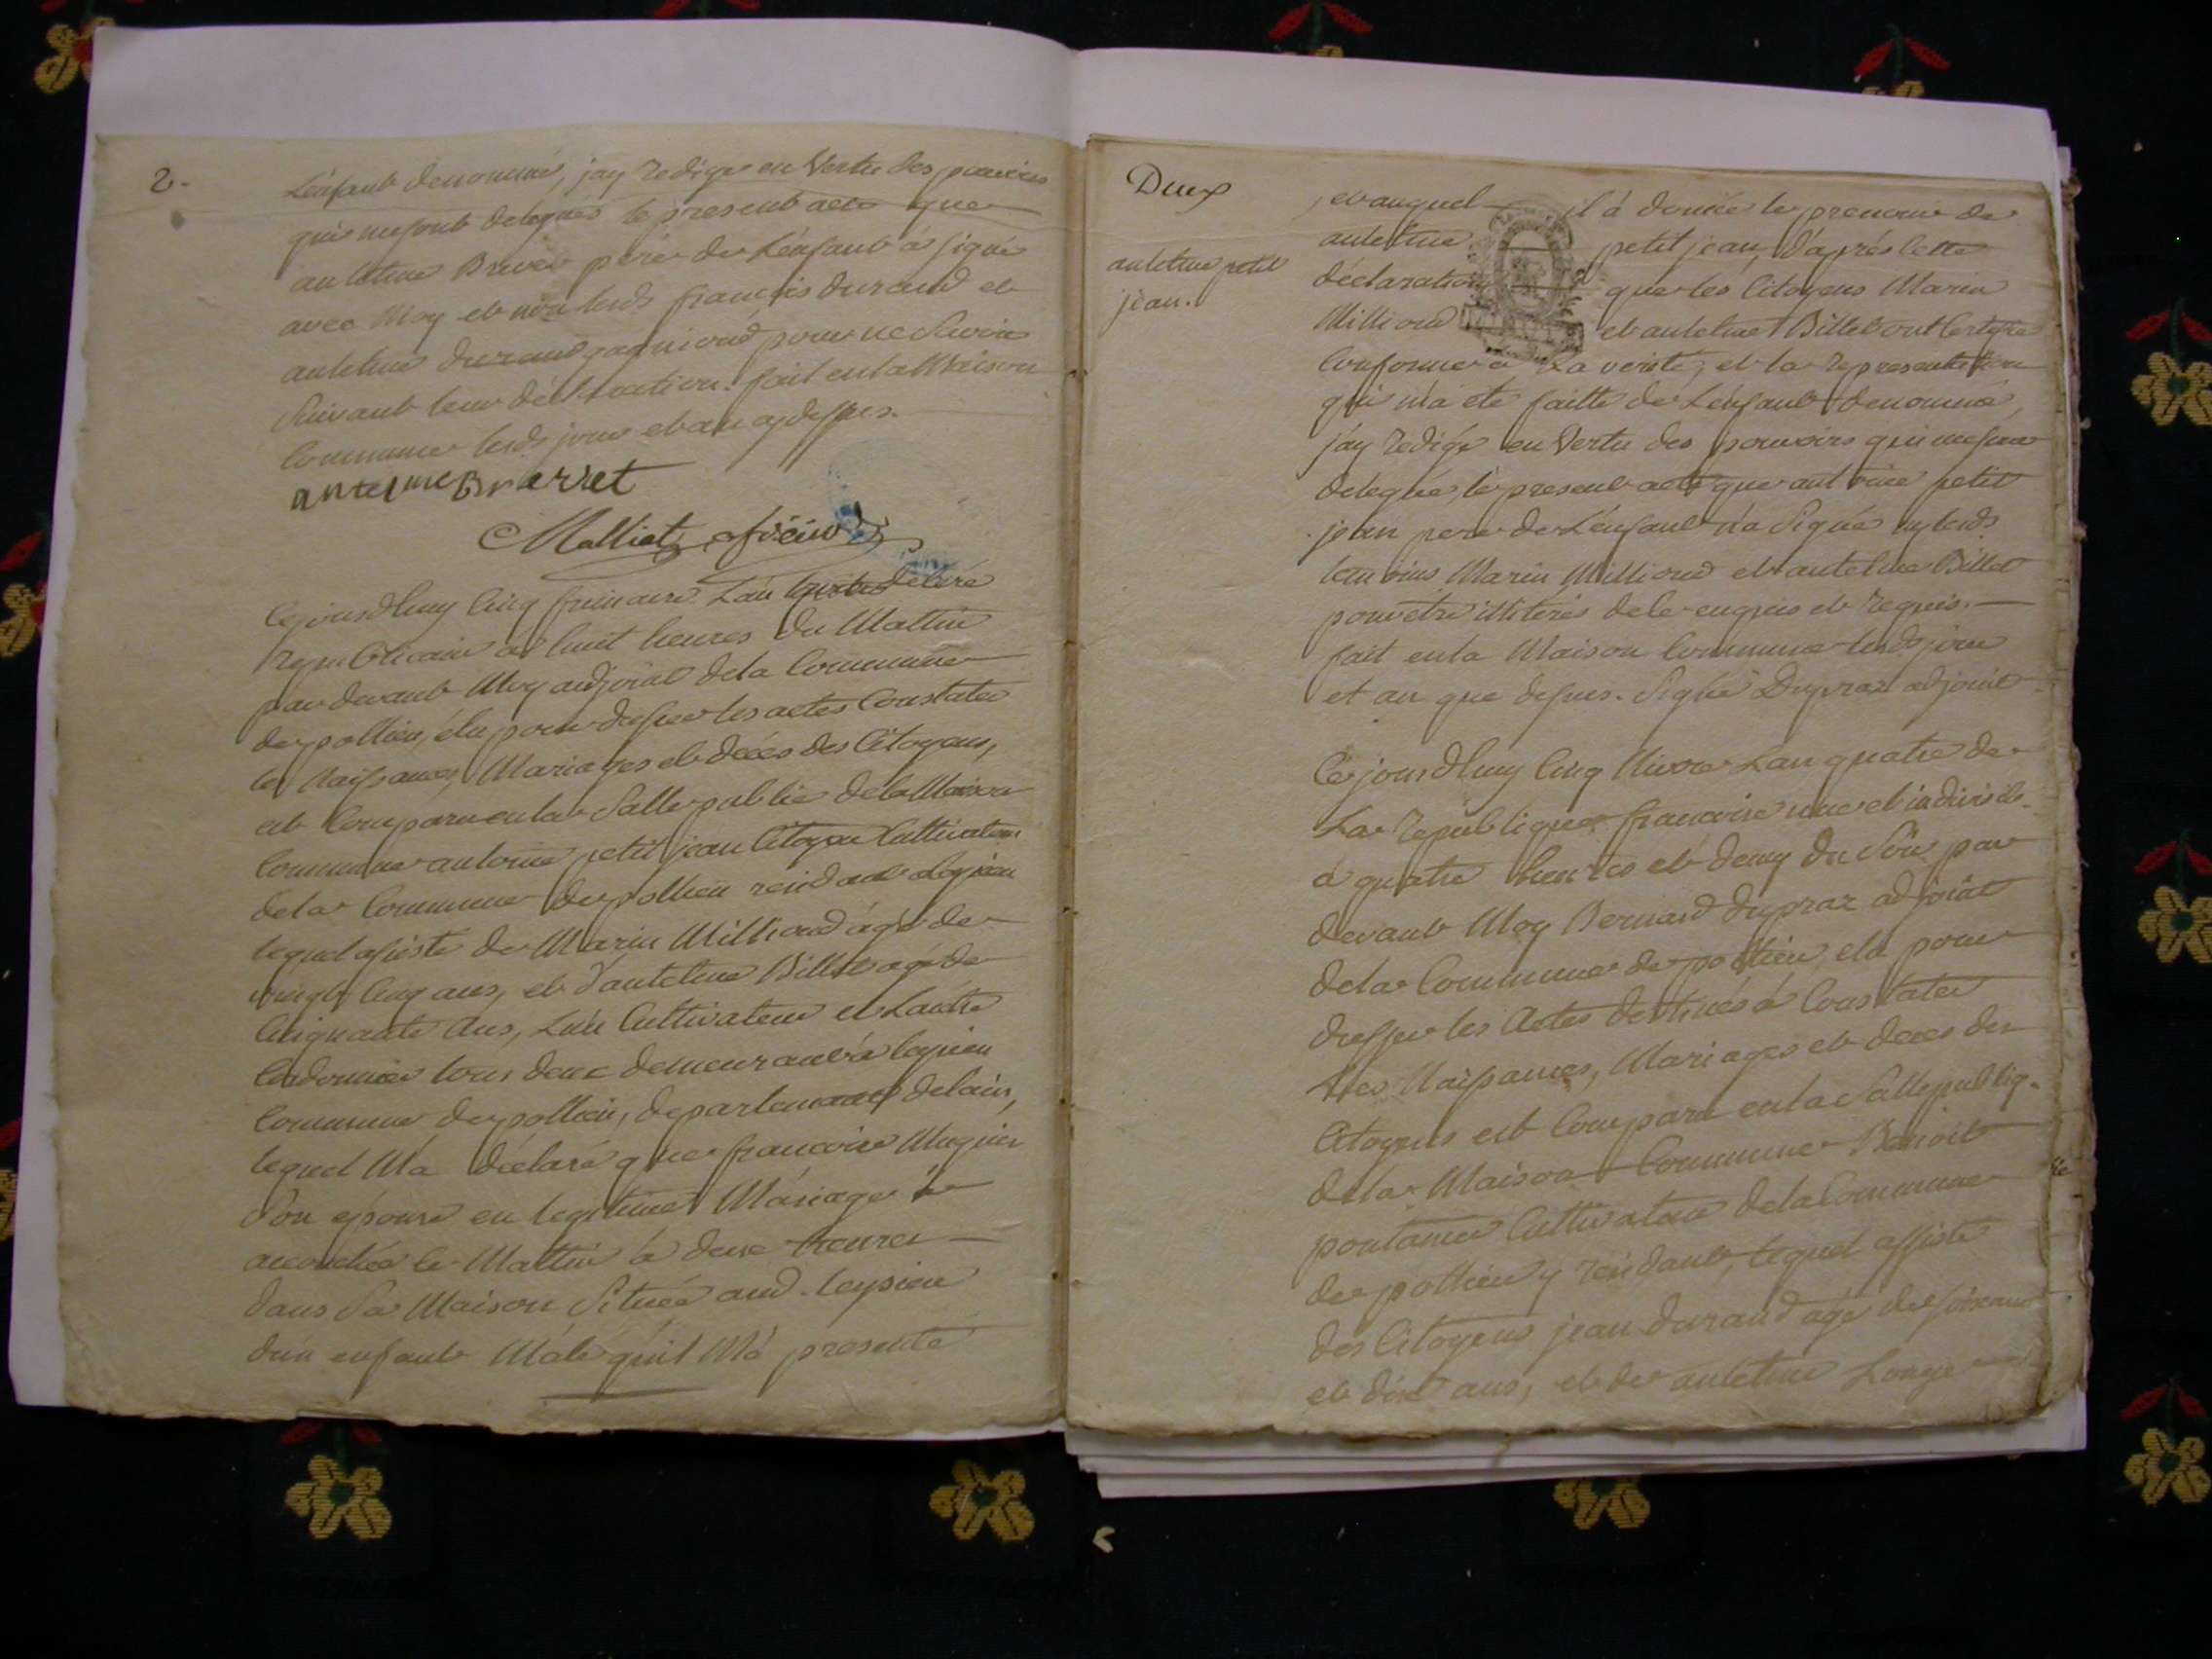 2.
L'énfant denommé, jay redigé en Vertu des pouvoirs
qui mesont delegués le present acte que
antelme Brevet père de L'énfant à signé
avec Moy et non lesds françois durand et
antelme durand gagniond pour ne Savoir
Suivant leur déclaration. fait en la Maison
Commune lesds jour et an cydessus.
antelme Brevet
Malliet
Cejourdhuy Cinq frimaire L'an de lere
republicaine à huit heures du Mattin
par devant Moy adjoint dela Commune
de pollieu, élu pour dresser les actes Constater
les Naissances, Mariages et décés des Citoyens,
est Comparu en la Salle public dela Maison
Commune antoine petit jean Citoyen Cultivateur
dela Commune de pollieu residant a leyssieu
lequel assisté de Marin Milliond agé de
vingt Cinq ans, et d'antelme Billet agé de
Cinquante ans, L'un Cultivateur et L'autre
Cordonnier tous deux demeurant à leyssieu
Commune de pollieu, departement delain,
lequel M'a déclaré que francoise Mugnier
Son épouse en legitime Mariage est
accouchée le Mattin à deux heures
dans Sa Maison Située aud. leysieu
d'un enfant Mâle qu'il M'à presenté
Deux
antelme petit
jean.
, et auquel il à donnée le prenom de
antelme petit jean, d'aprés cette
déclaration que les Citoyens Marin
Milliond et antelme Billet ont Certifié
Conforme à La verité, et la representation
qui m'a été faitte de L'énfant denommé,
j'ay redigé en Vertu des pouvoirs qui me sont
delegué, le present acte que antoine petit
jean pere de L'énfant n'a Signé ny lesds.
temoins Marin Milliond et antelme Billet
pour être illiterés de ce enquis et requis.
fait en la Maison Commune lesds jour
et an que dessus. Signé Dupraz adjoint
Ce jourdhuy Cinq Nivose L'an quatre de
La republique francoise une et indivisib.
à quatre heures et demy du Soir par
devant Moy Bernard dupraz adjoint
dela Commune de pollieu, elu pour
dresser les Actes destinés à Constater
les Naissances, Mariages et deces des
Citoyens est Comparu en la Salle publiq.
dela Maison Commune Benoit
pontanier Cultivateur dela Commune
de pollieu y résidant, lequel assisté
des Citoyens jean durand agé de soixante
et dix ans, et de antelme Longe